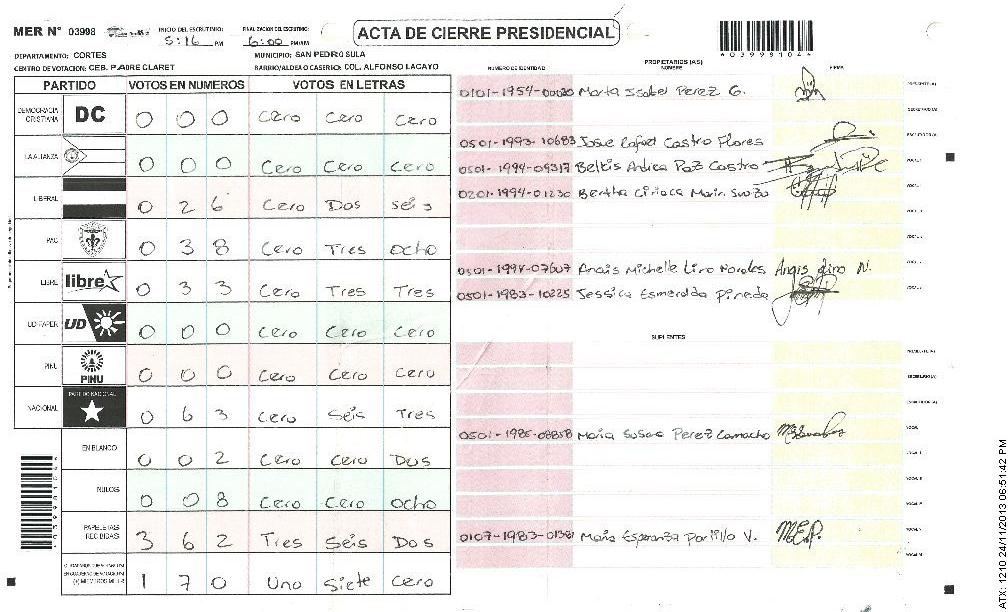 MER Nº 03998 INICIO DEL ESCRUTINIO: 5:16 PM FINALIZACION DEL ESCRUTINIO: 6:00 PM/AM
ACTA DE CIERRE PRESIDENCIAL
DEPARTAMENTO: CORTES MUNICIPIO: SAN PEDRO SULA
CENTRO DE VOTACION: CEB. PADRE CLARET BARRIO/ALDEA O CASERIO: COL. ALFONSO LACAYO
PARTIDO VOTOS EN NUMEROS VOTOS EN LETRAS
DEMOCRACIA CRISTIANA DC 0 0 0 Cero Cero Cero
LA ALIANZA 0 0 0 Cero Cero Cero
LIBERAL 0 2 6 Cero Dos seis
PAC 0 3 8 Cero Tres ocho
LIBRE libre 0 3 3 Cero Tres Tres
UD-FAPER UD 0 0 0 Cero Cero Cero
PINU PINU 0 0 0 Cero Cero Cero
NACIONAL PARTIDO NACIONAL 0 6 3 Cero Seis Tres
EN BLANCO 0 0 2 Cero Cero Dos
NULOS 0 0 8 Cero Cero ocho
PAPELETAS RECIBIDAS 3 6 2 Tres Seis Dos
1 7 0 Uno Siete Cero
PROPIETARIOS (AS)
NUMERO DE IDENTIDAD NOMBRE FIRMA
0101-1954-00020 Marta Isabel Perez G.
0501-1993-10683 Jose Rafael Castro Flores
0501-1994-09317 Belkis Andrea Paz Castro
0201-1994-01230 Bertha Ciriaca Marin
Anais Michelle Lino Anais Lino N.
0501-1983-10225 Jessica Esmeralda Pineda
SUPLENTES
Maria Susana Perez Camacho
0107-1983-01381 Maria Esperanza Portillo V. M.E.P.
ATX: 1210 24/11/2013 06:51:42 PM